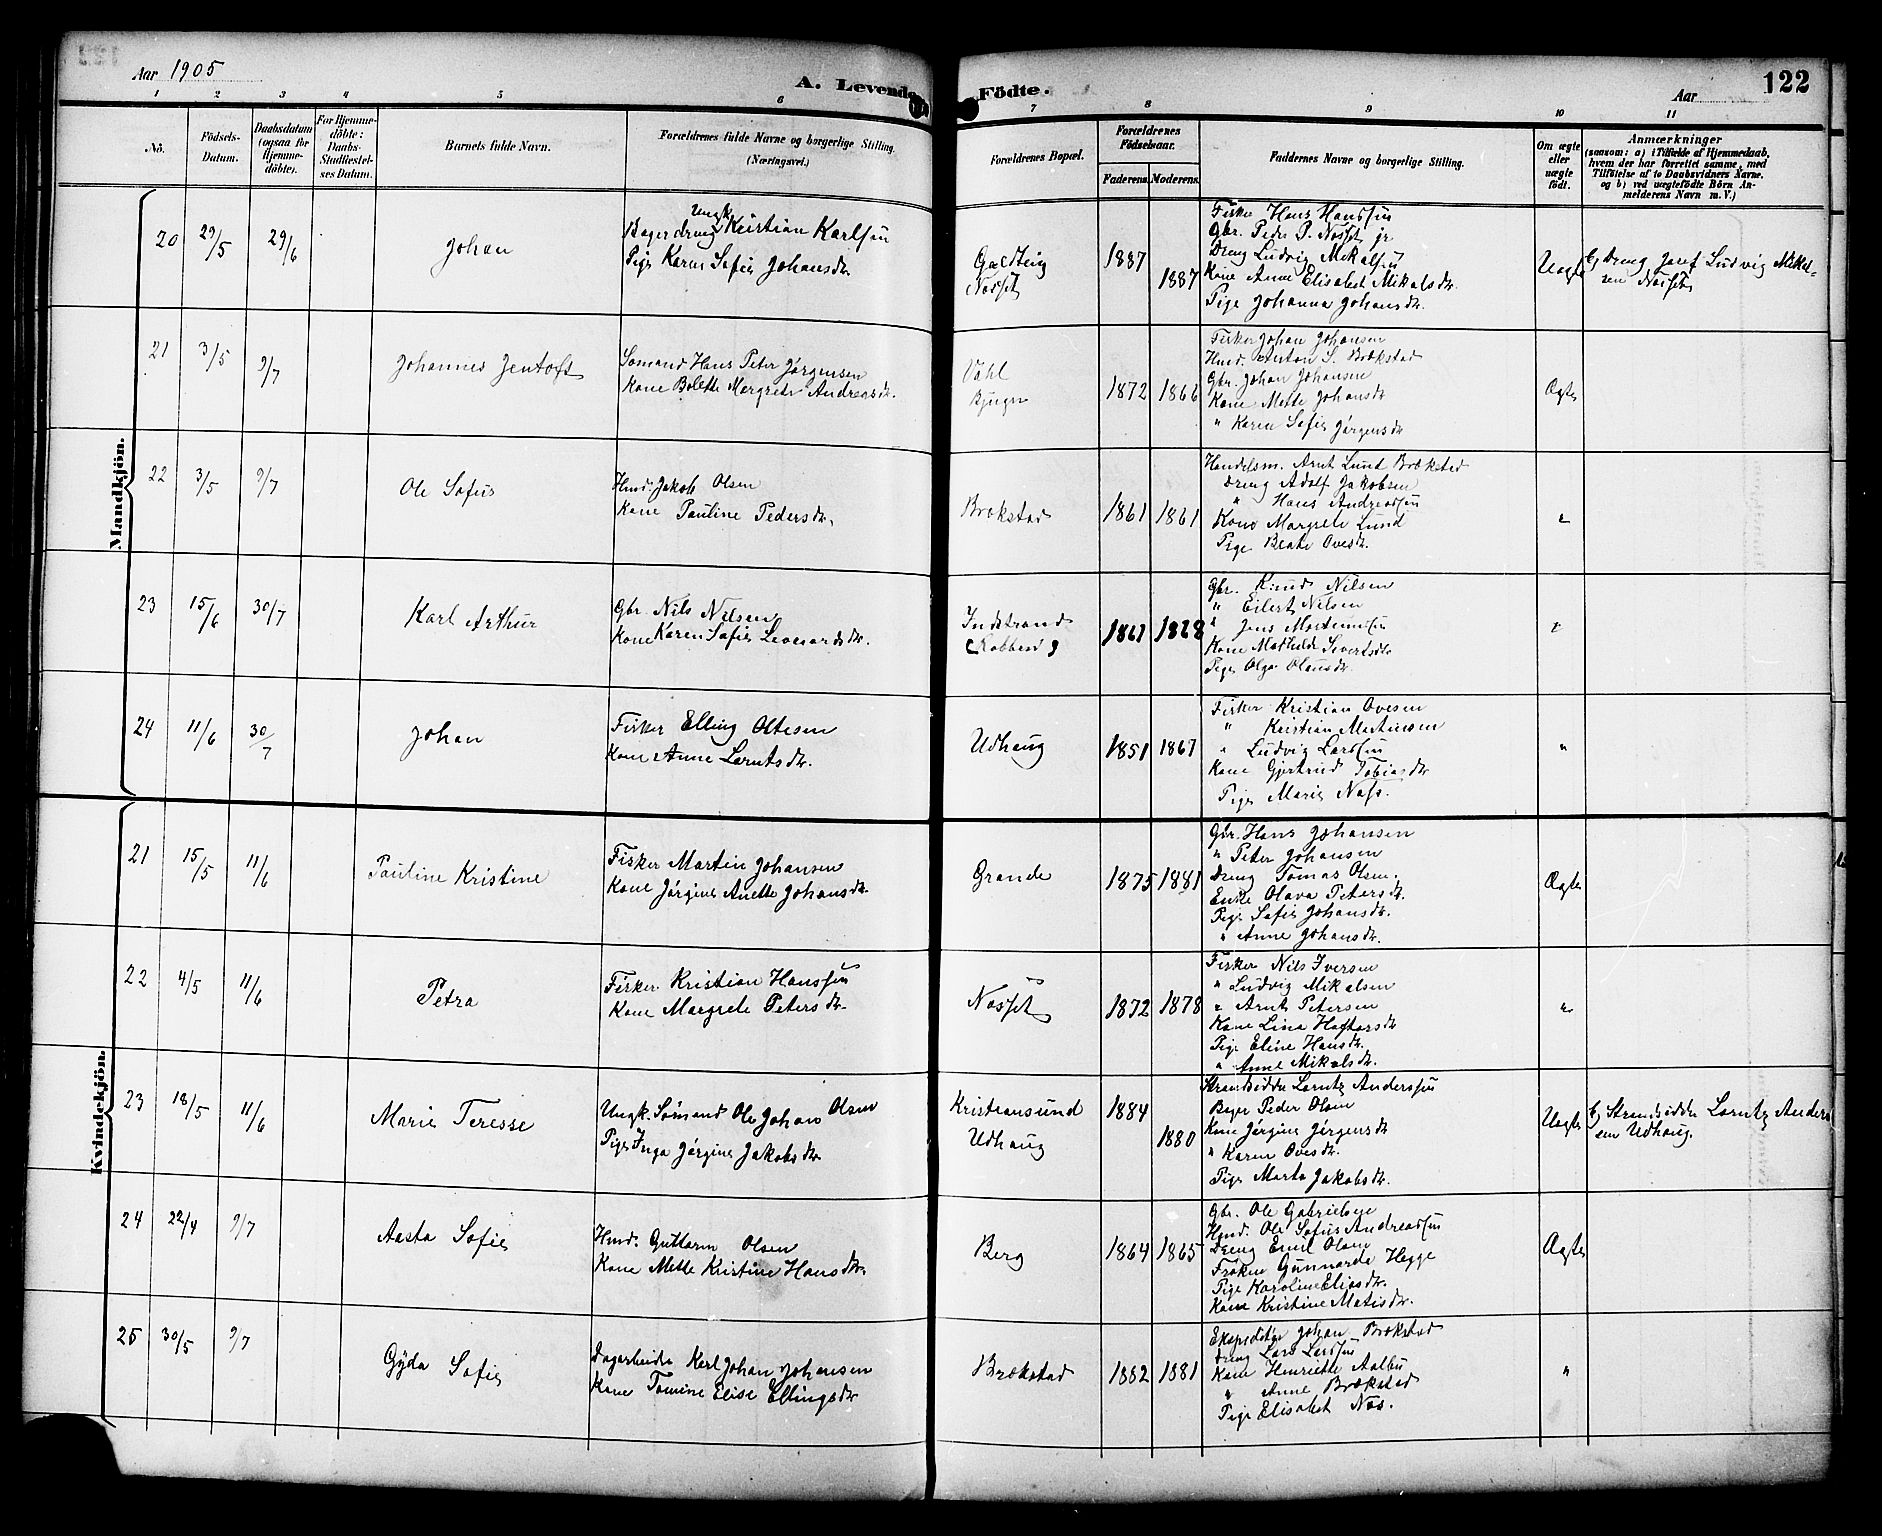 Aar 1905
A. Levende
Födte.
Aar
122
1 2 3 4 5 6 7 8 9 10 11
No.
Födsels-
Datum.
Daabsdatum
(ogsaa for
Hjemme-
döbte).
For Hjemme-
döbte:
Daabs-
Stadfæstel-
ses Datum.
Barnets fulde Navn.
Forældrenes fulde Navne og borgerlige Stilling.
(Næringsvei.)
Forældrenes Bopæl.
Forældrenes
Födselsaar.
Faderens.
Moderens.
Faddernes Navne og borgerlige Stilling.
Om ægte
eller
uægte
födt.
Anmærkninger
(saasom: a) i Tilfælde af Hjemmedaab,
hvem der har forrettet samme, med
Tilföielse af to Daabsvidners Navne.
og b) ved uægtefödte Börn An-
melderens Navn m. V.)
Mandkjön.
20 29/5 29/6 Johan
Ungk.
Bagerdreng Kristian Karlsen
Pige Karen Sofie Johansdtr.
Nosset
1887
1887
Fisker Hans Hanssen
Gbr. Peder P. Nosset jr
Dreng Ludvig Mikalsen
Kone Anne Elisabet Mikalsdtr.
Pige Johanna Johansdtr.
Uægte
b) Dreng Josef Ludvig Mikal-
sen Nosset
21 3/5 9/7 Johannes Jentoft
Sømand Hans Peter Jørgensen
Kone Bolette Margrete Andreasdtr.
Bjugn
1872 1866
Fisker Johan Johansen
Hmd. Anton S. Brækstad
Gbr. Johan Johansen
Kone Mette Johansdtr
" Karen Sofie Jørgensdtr
Ægte
22 3/5 9/7 Ole Sofus
Hmd. Jakob Olsen
Kone Pauline Pedersdtr.
Brækstad
1861 1861
Handelsm. Arnt Lund Brækstad
Dreng Adolf Jakobsen
" Hans Andreassen
Kone Margrete Lund
Pige Beate Ovesdtr.
"
23 15/6 30/7 Karl Arthur
Gbr. Nils Nilsen
Kone Karen Sofie Leonardsdtr.
Indstrand
1861 1868
Gbr. Knud Nilsen
" Eilert Nilsen
" Jens Mortensen
Kone Mathilde Sivertsdtr
Pige Olga Olausdtr.
"
24 11/6 30/7 Johan
Fisker Elling Oltesen
Kone Anne Lorntsdtr.
Udhaug
1851 1867
Fisker Kristian Ovesen
" Kristian Martinsen
" Ludvig Larssen
Kone Gjertrud Tobiasdtr
Pige Marie Næss.
"
Kvindekjön.
21 15/5 11/6 Pauline Kristine
Fisker Martin Johansen
Kone Jørgine Anette Johansdtr.
Grande
1875 1881
Gbr. Hans Johansen
" Peter Johansen
Dreng Tomas Olsen.
Enke Olava Petersdtr.
Pige Sofie Johansdtr.
" Anne Johansdtr.
Ægte
22 4/5 11/6 Petra
Fisker Kristian Hanssen
Kone Margrete Petersdtr.
Nosset
1872 1878
Fisker Nils Iversen
" Ludvig Mikalsen
" Arnt Petersen
Kone Lina Haftorsdtr
Pige Eline Hansdtr.
" Anne Mikalsdtr.
"
23 18/5 11/6 Marie Teresse
Ungk. Sømand Ole Johan Olsen
Pige Inga Jørgine Jakobsdtr.
Kristiansund
Udhaug
1884
1880
Strandsidder Lorntz Anderssen
Bager Peder Olsen
Kone Jørgine Jørgensdtr
" Karen Ovesdtr.
Pige Marta Jakobsdtr.
Uægte
b) Strandsidder Lorntz Anders-
sen Udhaug.
24 22/4 9/7 Aasta Sofie
Hmd. Guttorm Olsen
Kone Mette Kristine Hansdtr.
Berg
1864 1865
Gbr. Ole Gabrielsen
Hmd. Ole Sofus Andreassen
Dreng Emil Olsen
Frøken Gunnarda Hegge
Pige Karoline Eliasdtr.
Kone Kristine Matisdtr.
Ægte
25 30/5 9/7 Gyda Sofie
Dagarbeider Karl Johan Johansen
Kone Tomine Elise Ellingsdtr
Brækstad
1882 1881
Ekspeditør Johan Brækstad
Dreng Lars Larssen
Kone Henriette Aalbu
" Anne Brækstad
Pige Elisabet Næs.
"